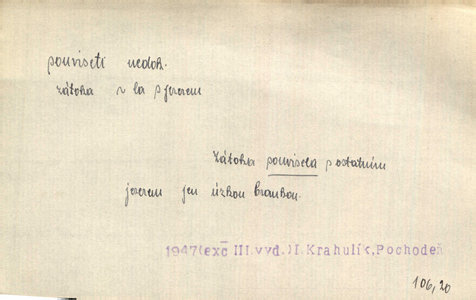 souviseti nedok.
zátoka s-la s jezerem
Zátoka souvisela s ostatním
jezerem jen úzkou brankou.
1947(exc III.vyd.)I.Krahulík,Pochodeň
106,20